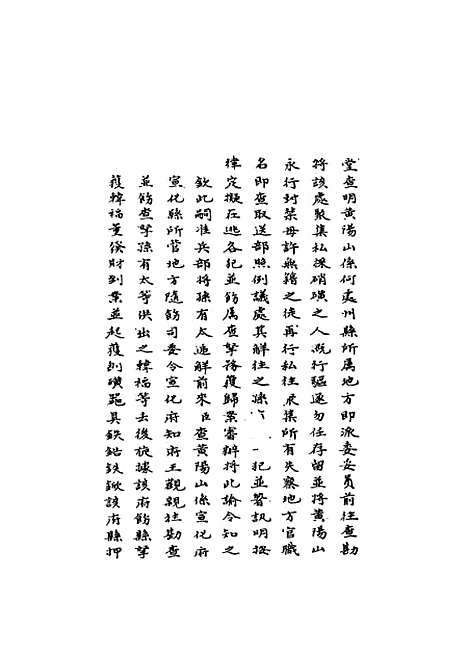 堂查明黄陽山係何處州縣所属地方即派委妥員前往查勘
将該處聚集私深硝磺之人既行驅逐勿任存留並将黄陽山
永行封禁毋許無籍之徒再行私往聚集所有失察地方官職
名即查取送部照例議處其觧往之孫 一犯並著訊明按
律定擬在逃各犯並飭属查拏務獲歸案審辦将此諭令知之
欽此嗣准兵部将孫有太遞觧前來臣查黄陽山係宣化府
宣化縣所管地方随飭司委令宣化府知府王觀親往勘查
並飭查拏孫有太等供出之韓福等去後旋據該府飭縣拏
獲韓福董俟財到案並起獲刮磺噐具鉄鈷鉄鍁該府縣押